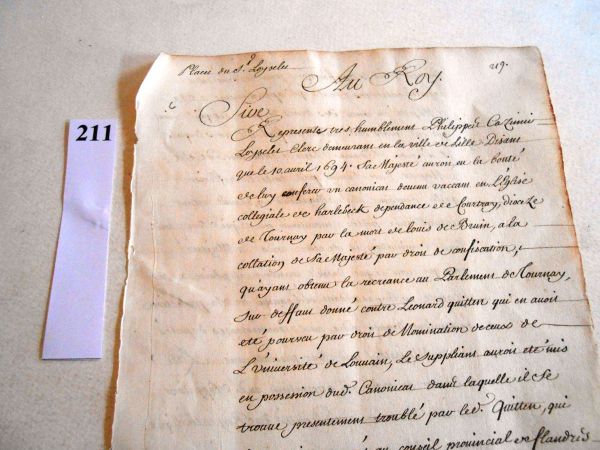 211
Placet du Sr. Loyselet
219.
Au Roy.
Sire
Represente tres humblement Philippes Cazimir
Loyselet Clerc demeurant en la ville de Lille Disant
que le 10. avril 1694. Sa Majesté auroit eu la bonté
de luy conferer un canonicat devenu vaccant en L'Eglise
collegiale de harlebeck dependance de Courtray, dioceze
de Tournay par la mort de louis de Bruin, a la
collation de Sa Majesté par droit de confiscation,
qu'ayant obtenu la recreance au Parlement de Tournay,
sur deffaut donné contre Leonard quitten qui en avoit
eté pourveu par droit de Nomination de ceux de
L'université de Louvain, le suppliant auroit eté mis
en possession dud. Canonicat dans laquelle il se
trouve presentement troublé par led. Quitten, qui
au conseil provincial de flandres